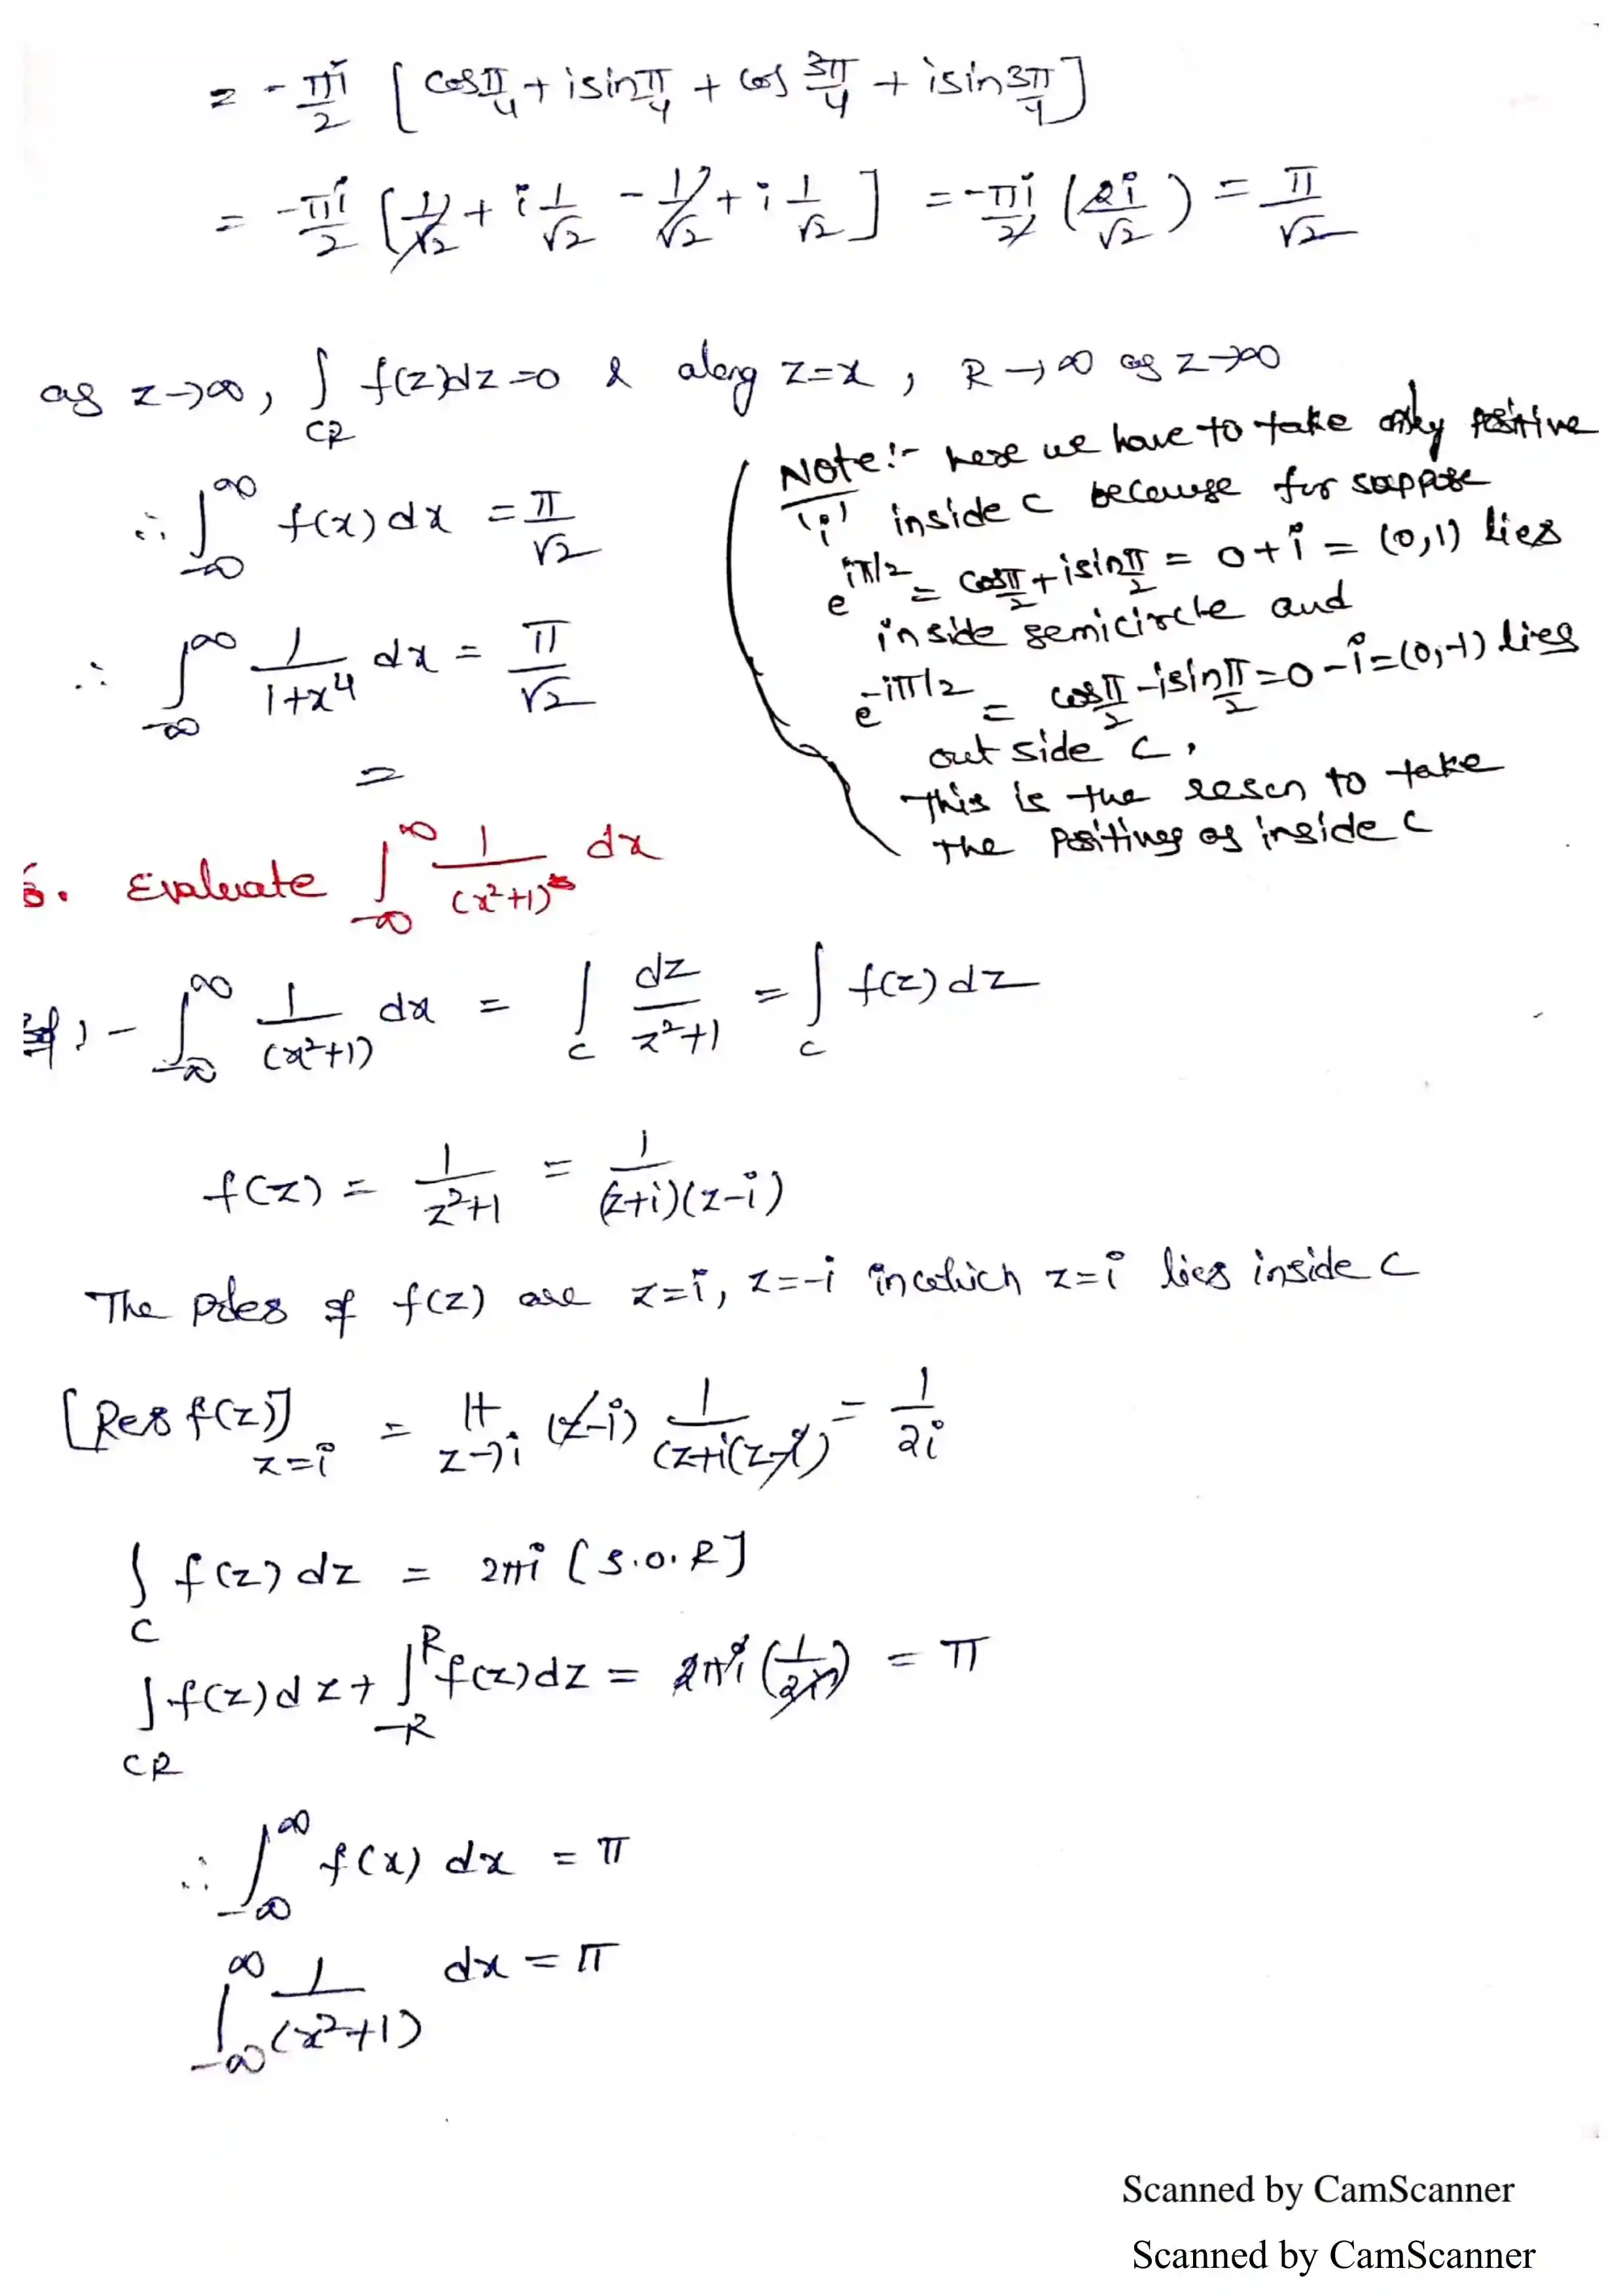 = -πi/2 [cos π/4 + i sin π/4 + cos 3π/4 + i sin 3π/4]
= -πi/2 [1/√2 + i 1/√2 - 1/√2 + i 1/√2] = -πi/2 (2i/√2) = π/√2
as z→∞, ∫_CR f(z)dz = 0 & along z=x, R→∞ as z→∞
∴ ∫_{-∞}^{∞} f(x) dx = π/√2
∴ ∫_{-∞}^{∞} 1/(1+x⁴) dx = π/√2
=
Note:- here we have to take only positive
'i' inside c because for suppose
e^{iπ/2} = cos π/2 + i sin π/2 = 0+i = (0,1) lies
inside semicircle and
e^{-iπ/2} = cos π/2 - i sin π/2 = 0-i = (0,-1) lies
out side c,
This is the reson to take
the positives as inside c
6. Evaluate ∫_{-∞}^{∞} 1/(x²+1) dx
Sol:- ∫_{-∞}^{∞} 1/(x²+1) dx = ∫_c dz/(z²+1) = ∫_c f(z) dz
f(z) = 1/(z²+1) = 1/((z+i)(z-i))
The poles of f(z) are z=i, z=-i in which z=i lies inside C
[Res f(z)]_{z=i} = lt_{z→i} (z-i) 1/(z+i(z-i)) = 1/2i
∫_C f(z) dz = 2πi [S.O.R]
∫_CR f(z)dz + ∫_{-R}^{R} f(z)dz = 2πi (1/2i) = π
∴ ∫_{-∞}^{∞} f(x) dx = π
∫_{-∞}^{∞} 1/(x²+1) dx = π
Scanned by CamScanner
Scanned by CamScanner